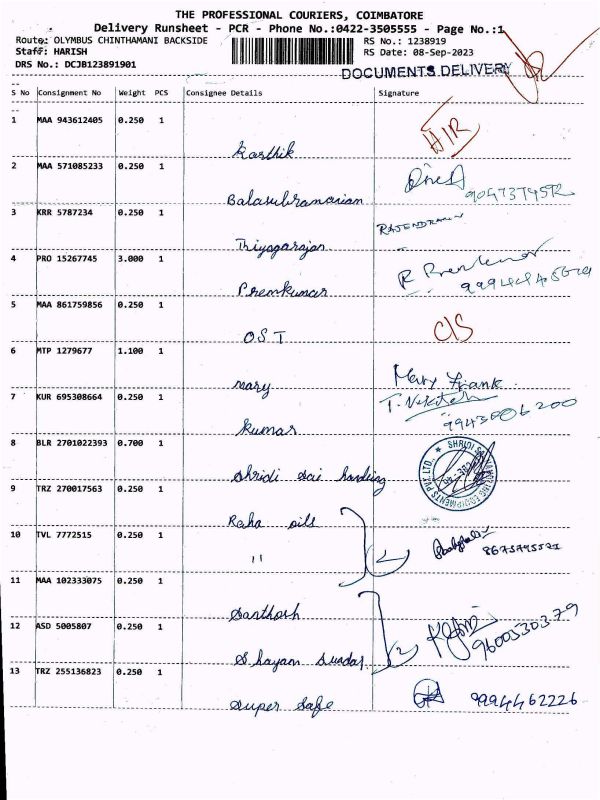 THE PROFESSIONAL COURIERS, COIMBATORE
Delivery Runsheet - PCR - Phone No.:0422-3505555 - Page No.:1
Route: OLYMBUS CHINTHAMANI BACKSIDE RS No.: 1238919
Staff: HARISH RS Date: 08-Sep-2023
DRS No.: DCJB123891901
DOCUMENTS DELIVERY
S No Consignment No Weight PCS Consignee Details Signature
1 MAA 943612405 0.250 1
Karthik
2 MAA 571085233 0.250 1
Balasubramanian
3 KRR 5787234 0.250 1
RAJENDRAN
Thiyagarajan
4 PRO 15267745 3.000 1
Premkumar
5 MAA 861759856 0.250 1
OST C/S
6 MTP 1279677 1.100 1
Mary Mary Frank
7 KUR 695308664 0.250 1
T. Nikitesh
Kumar 9943006200
8 BLR 2701022393 0.700 1
Shridi Sai handling
9 TRZ 270017563 0.250 1
Raha oils
10 TVL 7772515 0.250 1
" 2
11 MAA 102333075 0.250 1
Santhosh
12 ASD 5005807 0.250 1
Shayam Sundar 2 9600530379
13 TRZ 255136823 0.250 1
Super Safe 9994462226